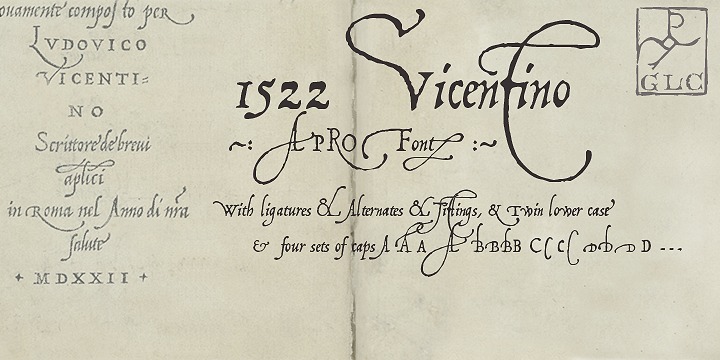 ouamente composto per
LVDOVICO
VICENTI=
NO
Scrittore de brevi
aplici
in Roma nel Anno di nra
salute
+ MDXXII +
1522 Vicentino
~: A PRO Font :~
With ligatures & Alternates & Tittings, & Twin lower case
& four sets of caps A A A A B B B B C C C D D D D ---
P
GLC